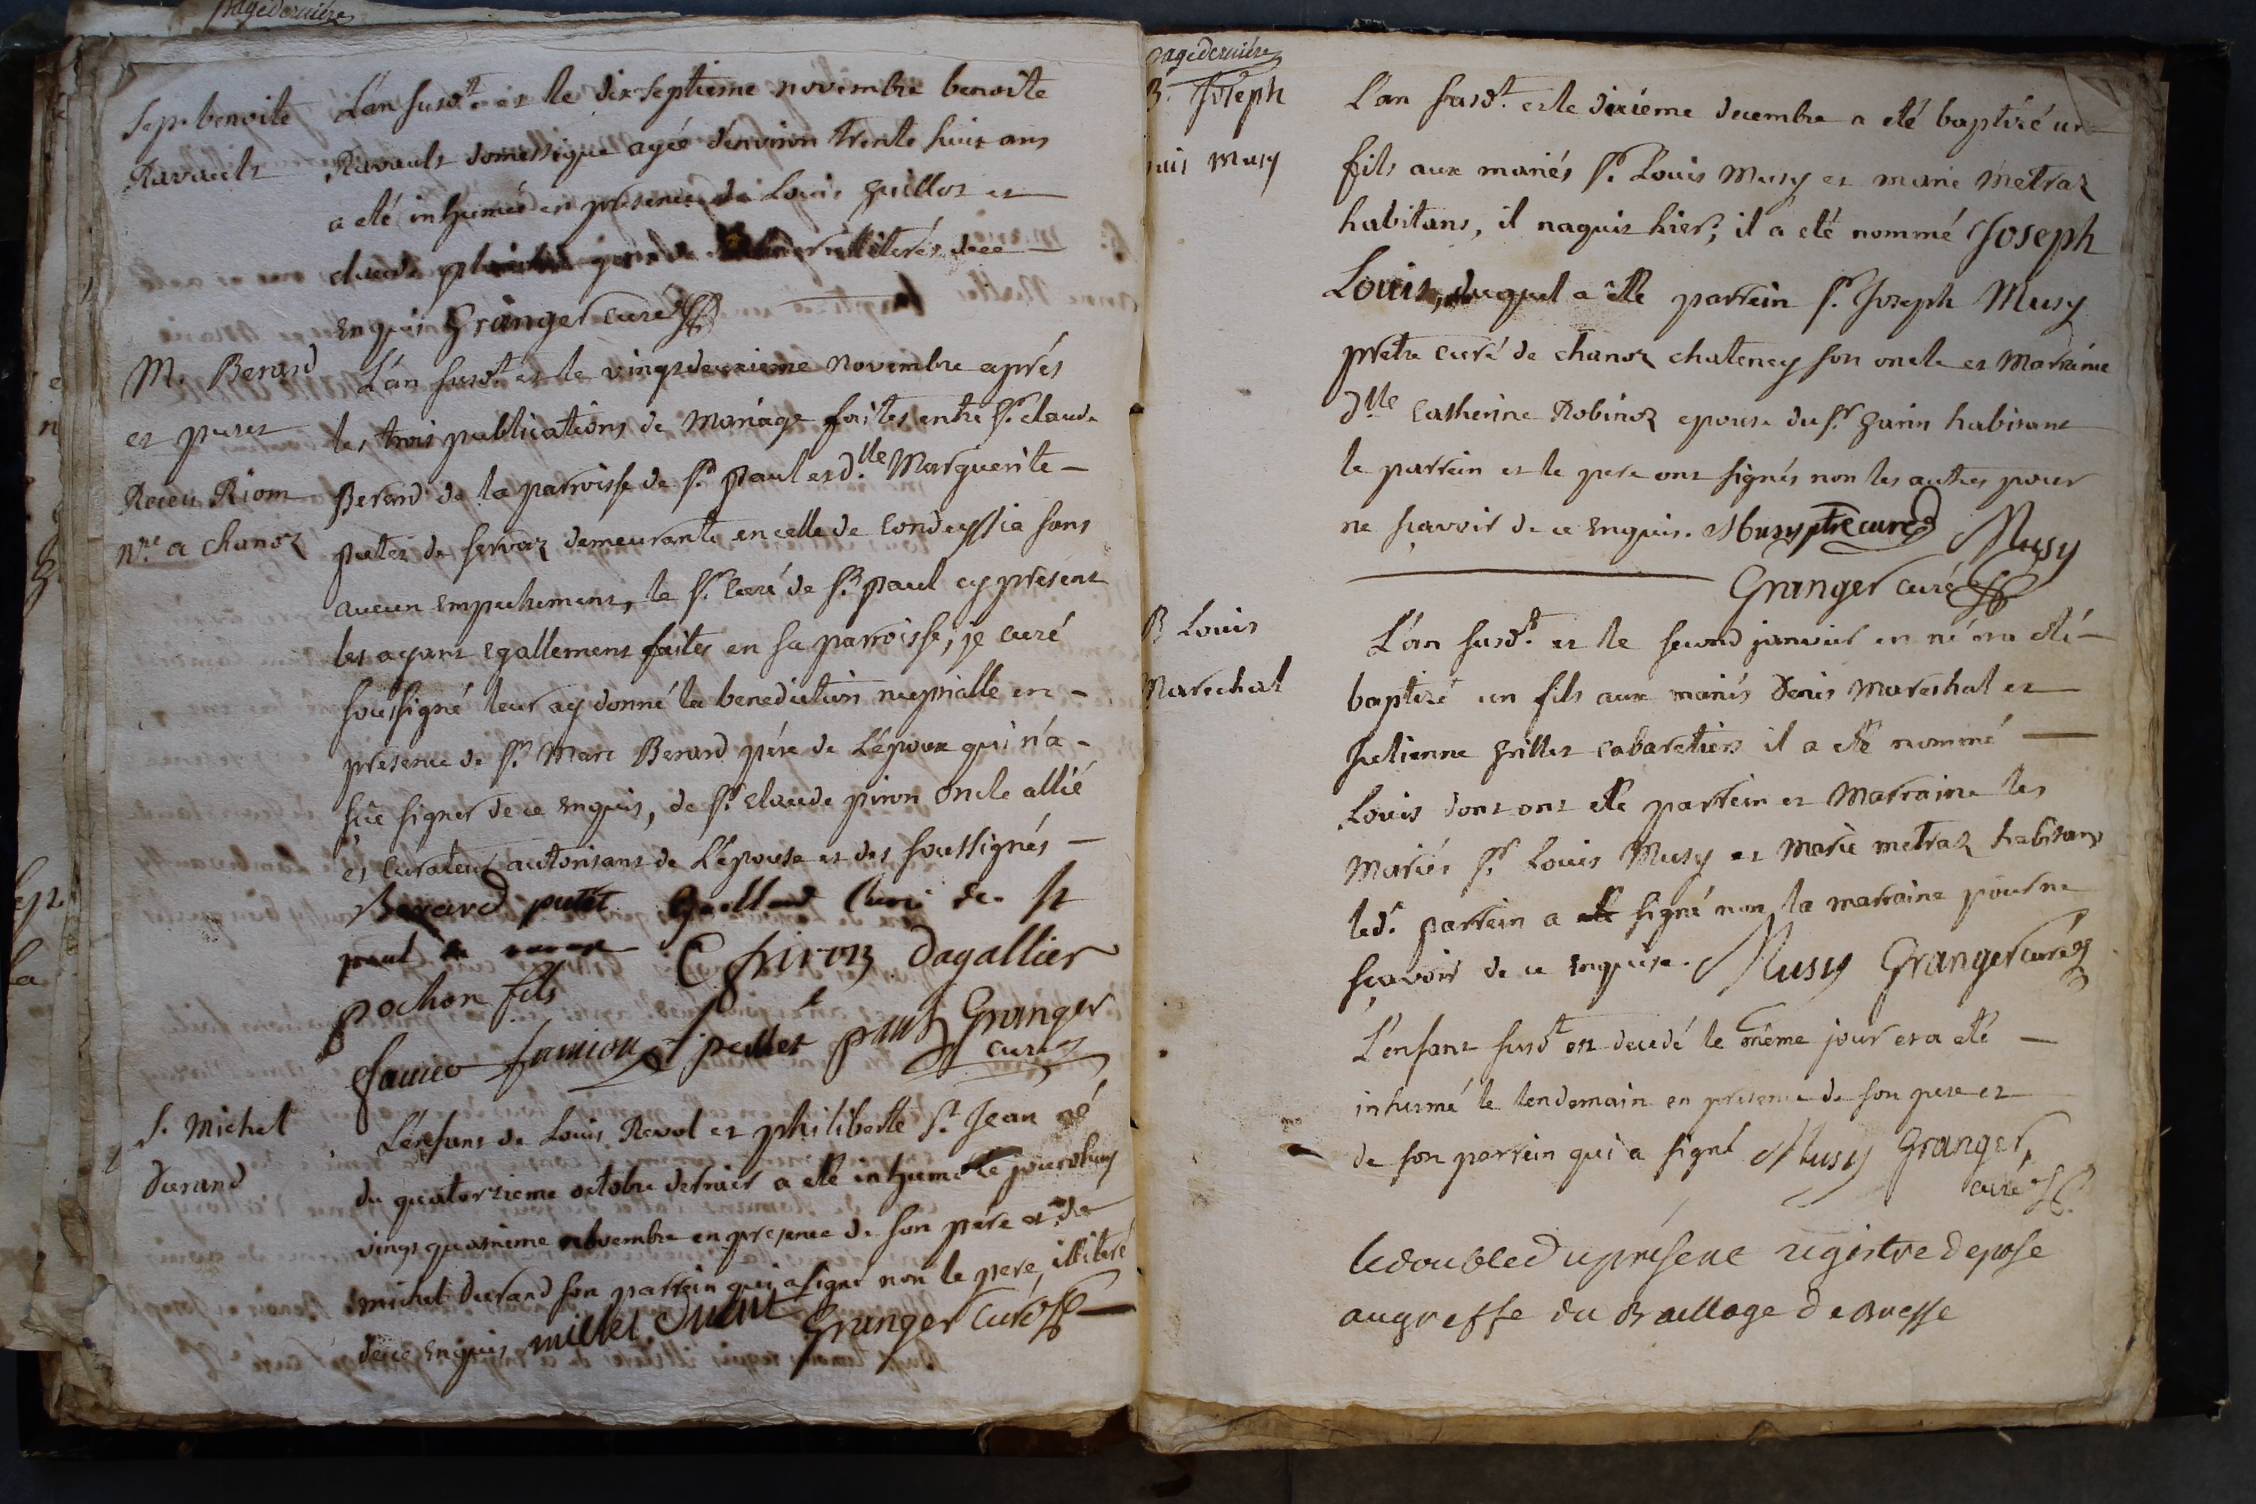 page derniere
Sep. benoite
Ravault
L'an susd.t et le dix septieme novembre benoite
Ravault domestique agée d'environ trente huit ans
a eté inhumée en presence de Louis guillot et
claude illiterés de ce
enquis Granger curé
M. Berard
et putet
Receu Riom
n.re a chanoz
L'an susd.t et le vingt deuxieme novembre aprés
les trois publications de mariage faites entre s.r claude
Berard de la parroisse de s.t paul et d.lle Marguerite
putet de servaz demeurante en celle de condeyssia sans
aucun empechement, le s.r curé de s.t paul cy present
les ayant egallement faites en sa parroisse, je curé
soussigné leur ay donné la benediction nuptialle en
presence de s.r Marc Berard pére de L'époux qui n'a
sçu signer de ce enquis, de s.r claude piron oncle allié
et curateur autorisant de L'épouse et des soussignés
Berard putet Curé de st
paul C piron Dagallier
pochon fils
Granger
curé
S. Michel
durand
L'enfant de Louis Revol et philiberte s.t Jean né
du quatorzieme octobre dernier a eté inhumé le jourdhuy
vingt quatrieme novembre en presence de son pére et de
michel durand son parrein qui a signé non le pere, illiteré
de ce enquis michel Granger curé
page derniere
B. Joseph
Louis Musy
L'an susd.t et le dixiéme decembre a eté baptizé un
fils aux mariés s.r Louis Musy et marie metraz
habitans, il naquit hier; il a eté nommé Joseph
Louis, duquel a eté parrein s.r Joseph Musy
pretre curé de chanoz chateney son oncle et Marraine
d.lle Catherine Robinoz epouse du s.r garin habitant
le parrein et le pere ont signés non les autres pour
ne sçavoir de ce enquis. Musy ptre curé Musy
Granger curé
B Louis
Marechal
L'an susd.t et le second janvier en né on a eté
baptizé un fils aux mariés Denis Mareshal et
Julienne grillet cabaretiers il a eté nommé
Louis dont ont eté parrein et Marraine les
Mariés s.r Louis Musy et Marie metraz habitans
led.t parrein a signé non la marraine pour ne
sçavoir de ce enquise. Musy Granger curé
L'enfant susd.t est decedé le même jour et a eté
inhumé le lendemain en presence de son pere et
de son parrein qui a signé Musy Granger,
curé
le double du présent registre deposé
au greffe du Baillage de Bresse